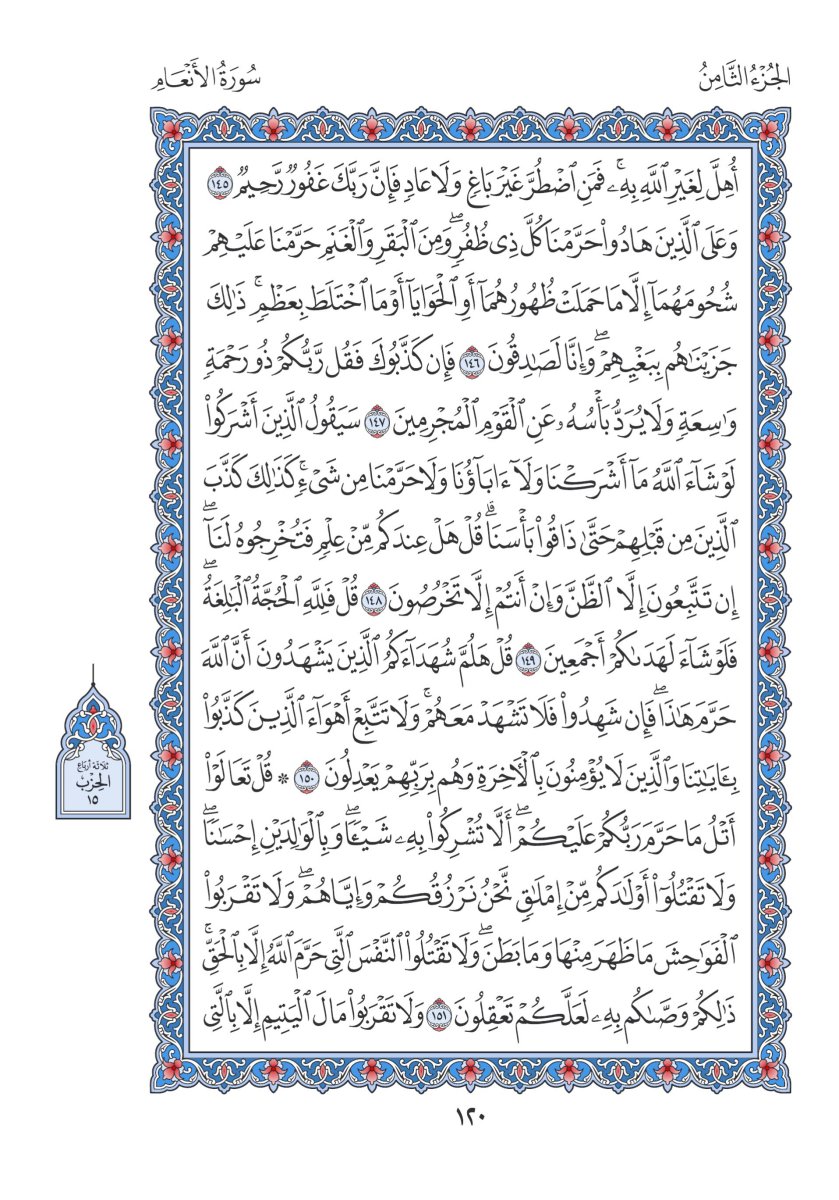 الجُزْءُ الثَّامِنُ
سُورَةُ الأَنْعَامِ
أُهِلَّ لِغَيۡرِ ٱللَّهِ بِهِۦۚ فَمَنِ ٱضۡطُرَّ غَيۡرَ بَاغٖ وَلَا عَادٖ فَإِنَّ رَبَّكَ غَفُورٞ رَّحِيمٞ ١٤٥
وَعَلَى ٱلَّذِينَ هَادُواْ حَرَّمۡنَا كُلَّ ذِي ظُفُرٖۖ وَمِنَ ٱلۡبَقَرِ وَٱلۡغَنَمِ حَرَّمۡنَا عَلَيۡهِمۡ
شُحُومَهُمَآ إِلَّا مَا حَمَلَتۡ ظُهُورُهُمَآ أَوِ ٱلۡحَوَايَآ أَوۡ مَا ٱخۡتَلَطَ بِعَظۡمٖۚ ذَٰلِكَ
جَزَيۡنَٰهُم بِبَغۡيِهِمۡۖ وَإِنَّا لَصَٰدِقُونَ ١٤٦ فَإِن كَذَّبُوكَ فَقُل رَّبُّكُمۡ ذُو رَحۡمَةٖ
وَٰسِعَةٖ وَلَا يُرَدُّ بَأۡسُهُۥ عَنِ ٱلۡقَوۡمِ ٱلۡمُجۡرِمِينَ ١٤٧ سَيَقُولُ ٱلَّذِينَ أَشۡرَكُواْ
لَوۡ شَآءَ ٱللَّهُ مَآ أَشۡرَكۡنَا وَلَآ ءَابَآؤُنَا وَلَا حَرَّمۡنَا مِن شَيۡءٖۚ كَذَٰلِكَ كَذَّبَ
ٱلَّذِينَ مِن قَبۡلِهِمۡ حَتَّىٰ ذَاقُواْ بَأۡسَنَاۗ قُلۡ هَلۡ عِندَكُم مِّنۡ عِلۡمٖ فَتُخۡرِجُوهُ لَنَآۖ
إِن تَتَّبِعُونَ إِلَّا ٱلظَّنَّ وَإِنۡ أَنتُمۡ إِلَّا تَخۡرُصُونَ ١٤٨ قُلۡ فَلِلَّهِ ٱلۡحُجَّةُ ٱلۡبَٰلِغَةُۖ
فَلَوۡ شَآءَ لَهَدَىٰكُمۡ أَجۡمَعِينَ ١٤٩ قُلۡ هَلُمَّ شُهَدَآءَكُمُ ٱلَّذِينَ يَشۡهَدُونَ أَنَّ ٱللَّهَ
حَرَّمَ هَٰذَاۖ فَإِن شَهِدُواْ فَلَا تَشۡهَدۡ مَعَهُمۡۚ وَلَا تَتَّبِعۡ أَهۡوَآءَ ٱلَّذِينَ كَذَّبُواْ
بِـَٔايَٰتِنَا وَٱلَّذِينَ لَا يُؤۡمِنُونَ بِٱلۡأٓخِرَةِ وَهُم بِرَبِّهِمۡ يَعۡدِلُونَ ١٥٠ ۞ قُلۡ تَعَالَوۡاْ
أَتۡلُ مَا حَرَّمَ رَبُّكُمۡ عَلَيۡكُمۡۖ أَلَّا تُشۡرِكُواْ بِهِۦ شَيۡـٔٗاۖ وَبِٱلۡوَٰلِدَيۡنِ إِحۡسَٰنٗاۖ
وَلَا تَقۡتُلُوٓاْ أَوۡلَٰدَكُم مِّنۡ إِمۡلَٰقٖ نَّحۡنُ نَرۡزُقُكُمۡ وَإِيَّاهُمۡۖ وَلَا تَقۡرَبُواْ
ٱلۡفَوَٰحِشَ مَا ظَهَرَ مِنۡهَا وَمَا بَطَنَۖ وَلَا تَقۡتُلُواْ ٱلنَّفۡسَ ٱلَّتِي حَرَّمَ ٱللَّهُ إِلَّا بِٱلۡحَقِّۚ
ذَٰلِكُمۡ وَصَّىٰكُم بِهِۦ لَعَلَّكُمۡ تَعۡقِلُونَ ١٥١ وَلَا تَقۡرَبُواْ مَالَ ٱلۡيَتِيمِ إِلَّا بِٱلَّتِي
ثلاثة أرباع
الحِزْب
١٥
١٢٠